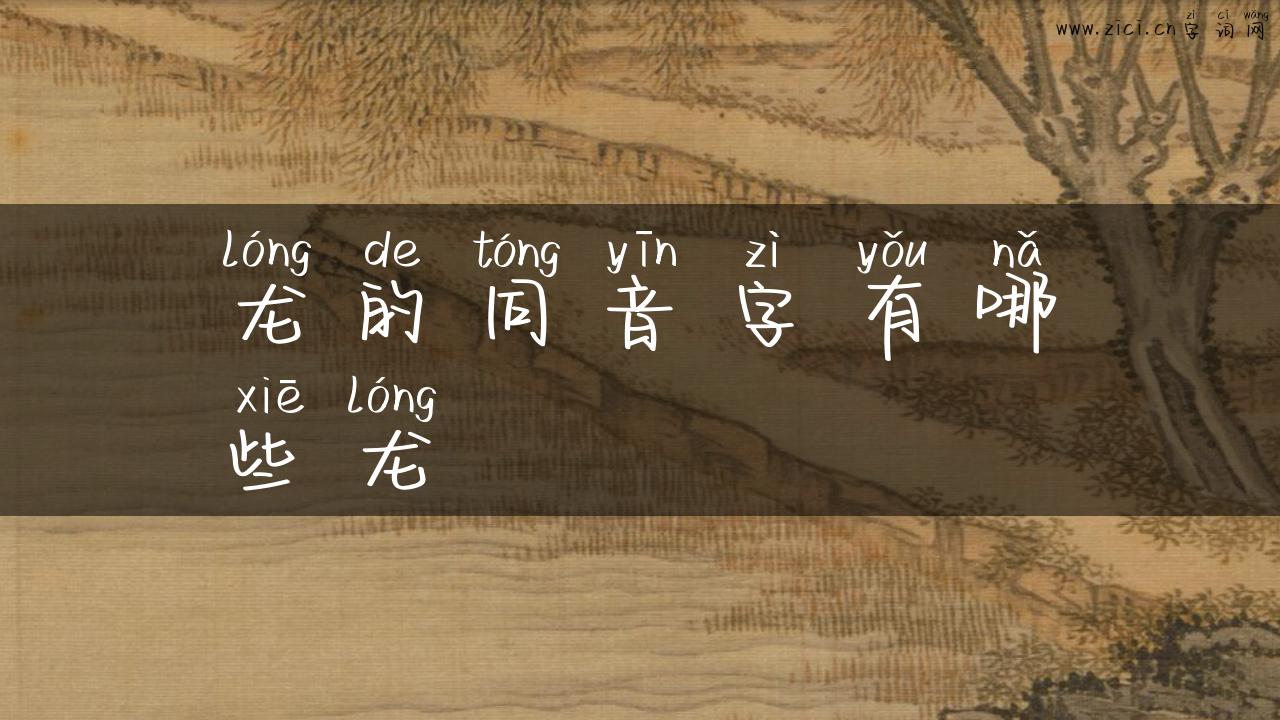 zì cí wǎng
www.zici.cn 字 词 网
lóng de tóng yīn zì yǒu nǎ
龙 的 同 音 字 有 哪
xiē lóng
些 龙